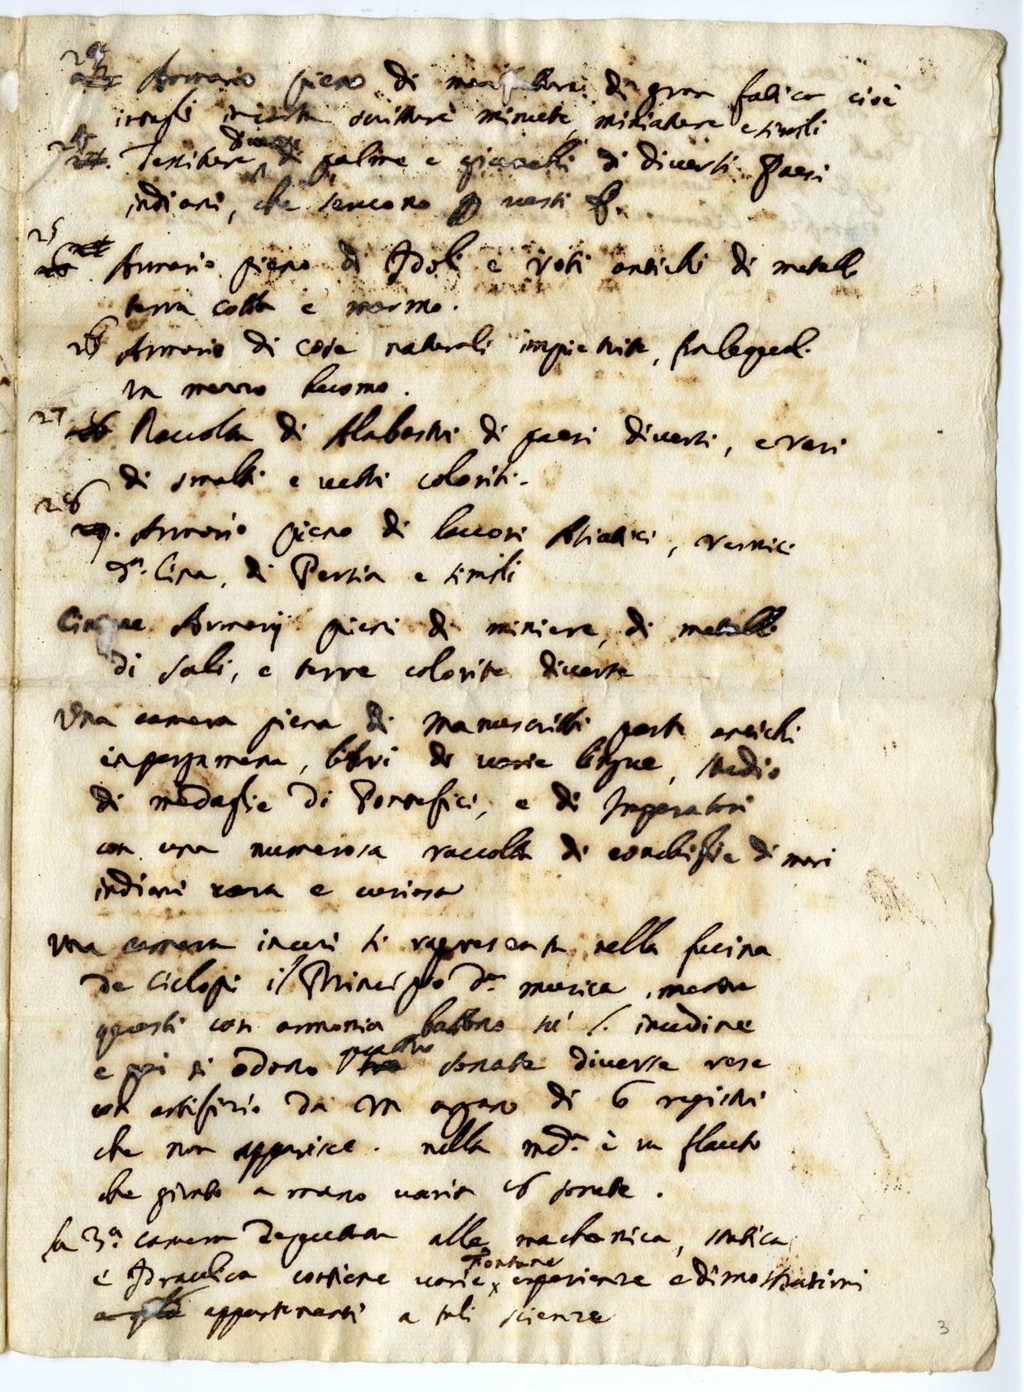 Armario pieno di manifatture di gran fatica cioè
intagli in carta scritture minute, miniature e simili
Tessiture di palme e giunchi di diversi Paesi
indiani, che servono vesti
25 Armario pieno di Idoli e voti antichi di metallo
terra cotta e marmo.
26 Armario di cose naturali impietrite, fra le quali
un mezzo huomo.
27 Raccolta di Alabastri di paesi diversi, e vasi
di smalti e vetri coloriti.
28
Armario pieno di lavori Asiatici, vernici
Cina, di Persia e simili
Cinque Armarij pieni di miniere, di metalli
di sali, e terre colorite diverse
Una camera piena di manuscritti parte antichi
in pergamena, libri di varie lingue, studio
di medaglie di Pontefici, e di Imperatori
con una numerosa raccolta di conchiglie di mari
indiani rara e curiosa
Una camera in cui si rapresenta nella fucina
de Ciclopi il Principio dª musica, mentre
questi con armonia battono su l' incudine
e poi si odono quattro sonate diverse rese
con artifizio da un organo di 6 registri
che non apparisce. nella medª è un flauto
che girato a mano varia 16 sonate.
la 3ª camera deputata alla mechanica, statica,
fontane
e Idraulica contiene varie esperienze e dimostrationi
appartenenti a tali scienze
3